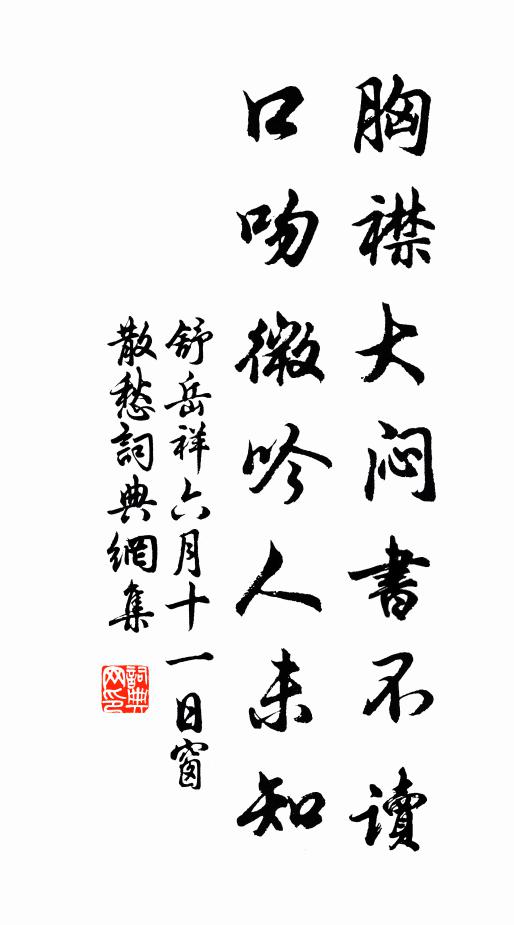 胸襟大闷書不讀
口吻微吟人未知
舒岳祥六月十一日窗
散愁詞典網集
詞典网印